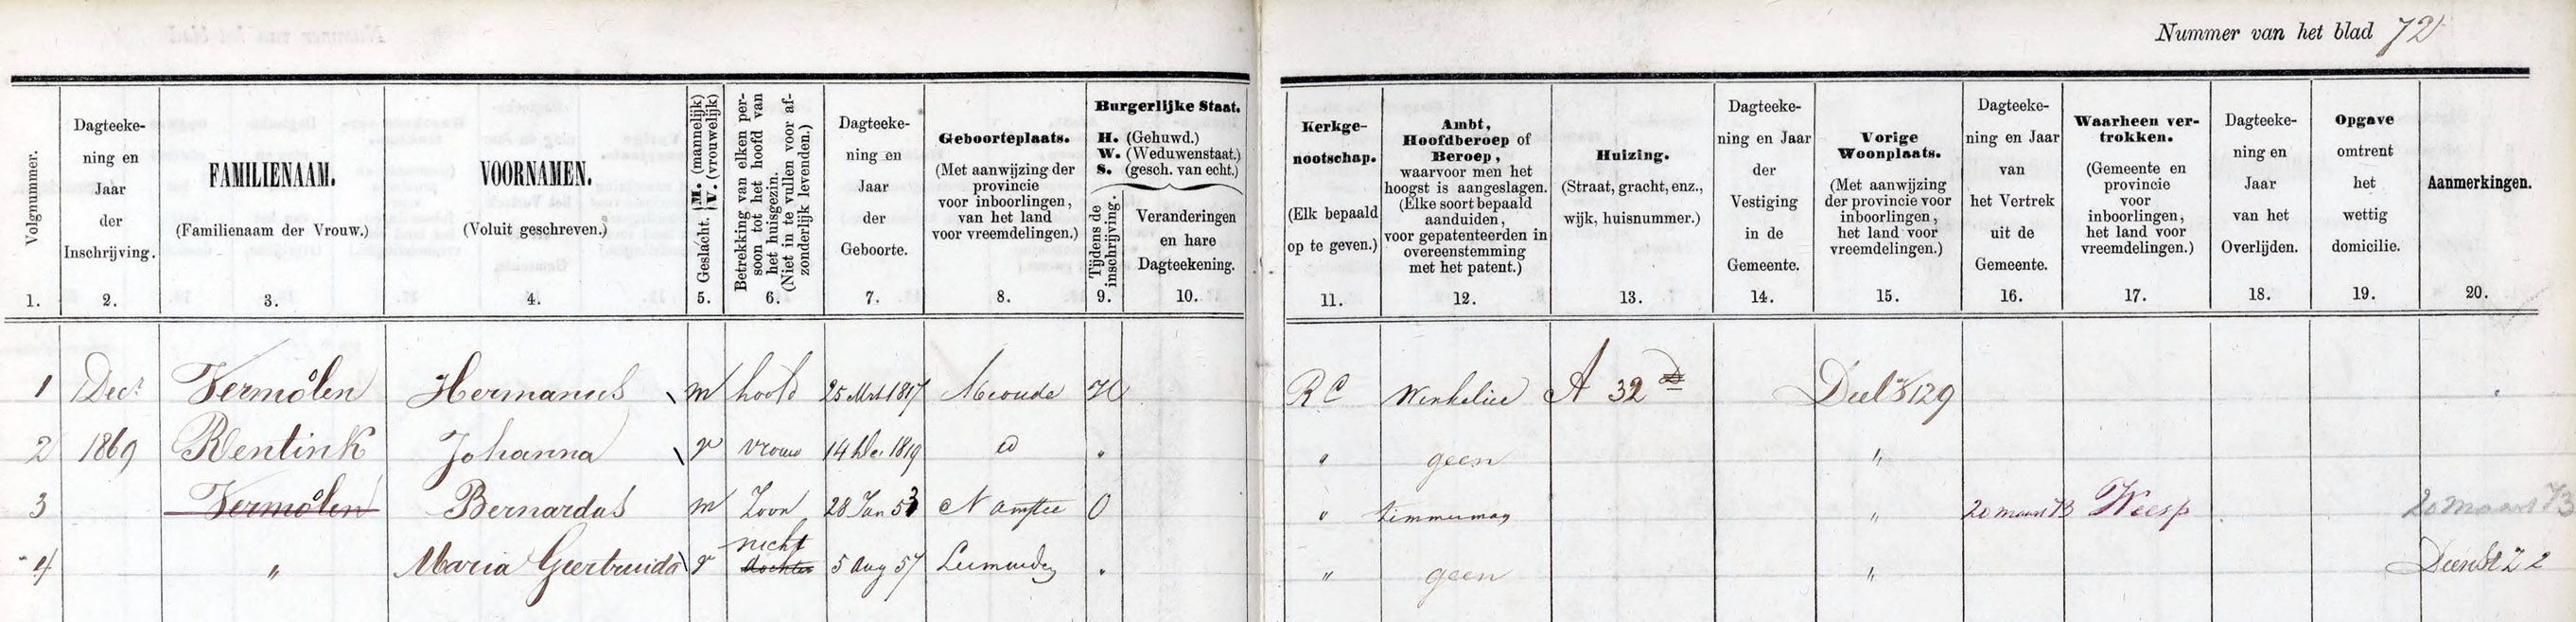 Nummer van het blad 72
Volgnummer.
1.
Dagteeke-
ning en
Jaar
der
Inschrijving.
2.
FAMILIENAAM.
(Familienaam der Vrouw.)
3.
VOORNAMEN.
(Voluit geschreven.)
4.
Geslacht. M. (mannelijk) V. (vrouwelijk)
5.
Betrekking van elken per-
soon tot het hoofd van
het huisgezin.
(Niet in te vullen voor af-
zonderlijk levenden.)
6.
Dagteeke-
ning en
Jaar
der
Geboorte.
7.
Geboorteplaats.
(Met aanwijzing der
provincie
voor inboorlingen,
van het land
voor vreemdelingen.)
8.
Burgerlijke Staat.
H. (Gehuwd.)
W. (Weduwenstaat.)
S. (gesch. van echt.)
Tijdens de
inschrijving.
9.
Veranderingen
en hare
Dagteekening.
10.
Kerkge-
nootschap.
(Elk bepaald
op te geven.)
11.
Ambt,
Hoofdberoep of
Beroep,
waarvoor men het
hoogst is aangeslagen.
(Elke soort bepaald
aanduiden,
voor gepatenteerden in
overeenstemming
met het patent.)
12.
Huizing.
(Straat, gracht, enz.,
wijk, huisnummer.)
13.
Dagteeke-
ning en Jaar
der
Vestiging
in de
Gemeente.
14.
Vorige
Woonplaats.
(Met aanwijzing
der provincie voor
inboorlingen,
het land voor
vreemdelingen.)
15.
Dagteeke-
ning en Jaar
van
het Vertrek
uit de
Gemeente.
16.
Waarheen ver-
trokken.
(Gemeente en
provincie
voor
inboorlingen,
het land voor
vreemdelingen.)
17.
Dagteeke-
ning en
Jaar
van het
Overlijden.
18.
Opgave
omtrent
het
wettig
domicilie.
19.
Aanmerkingen.
20.
1 Decr Vermolen Hermanus m hoofd 25 Mrt 1817 H R C Winkelier A 32 Deel 129
2 1869 Rentink Johanna v vrouw 14 1819 " " geen "
3 Vermolen Bernardus m Zoon 28 Jan 53 N Amstel O " timmerman " 20 maart 73 Weesp 20 maart 73
4 " Maria Geertruida v nicht dochter 5 Aug 57 Leimuiden " " geen " Dienst